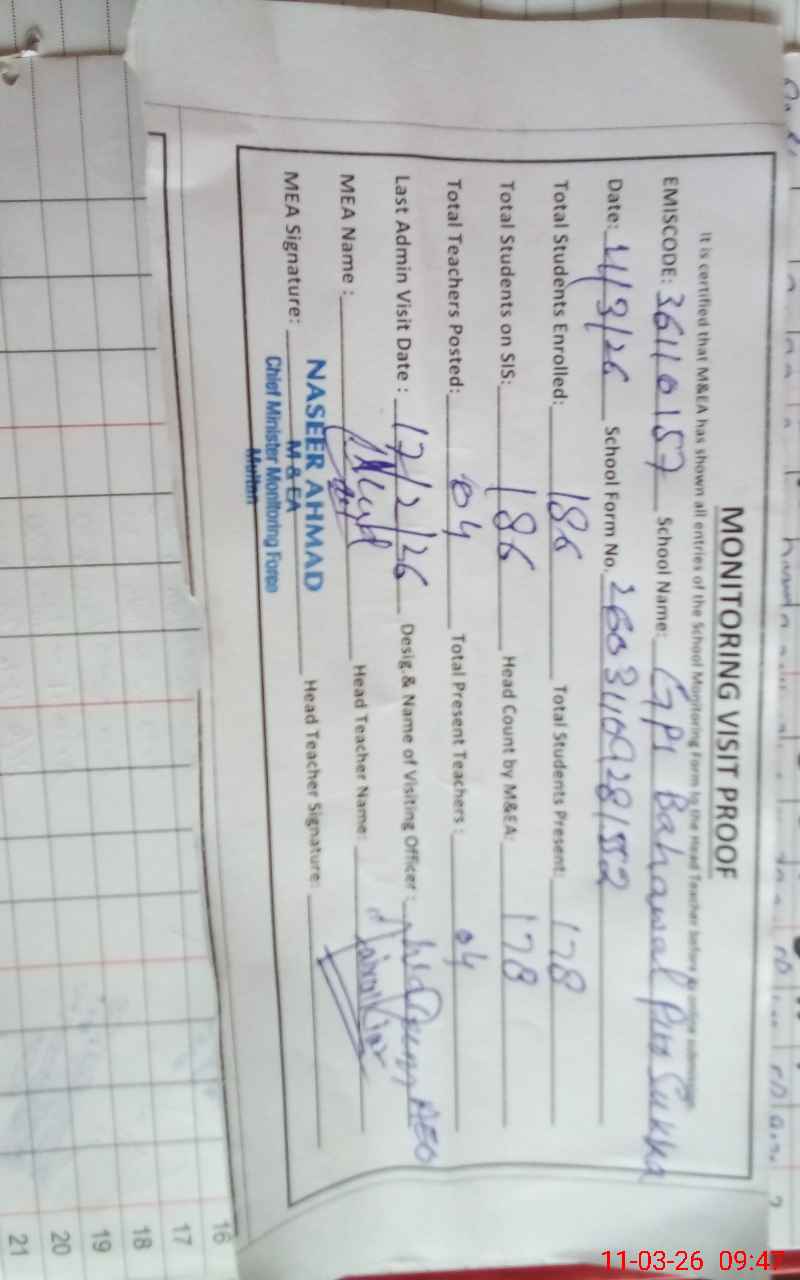 MONITORING VISIT PROOF
It is certified that M&EA has shown all entries of the School Monitoring Form to the Head Teacher before
EMISCODE: 36110157 School Name: GPS Bahawal Pur Sukha
Date: 11/3/26 School Form No. 26031109281552
Total Students Enrolled: 186 Total Students Present: 178
Total Students on SIS: 186 Head Count by M&EA: 178
Total Teachers Posted: 04 Total Present Teachers : 04
Last Admin Visit Date : 17/2/26 Desig.& Name of Visiting Officer : AEO
MEA Name : Head Teacher Name:
MEA Signature: Head Teacher Signature:
NASEER AHMAD
M & EA
Chief Minister Monitoring Force
Multan
16
17
18
19
20
21
11-03-26 09:47